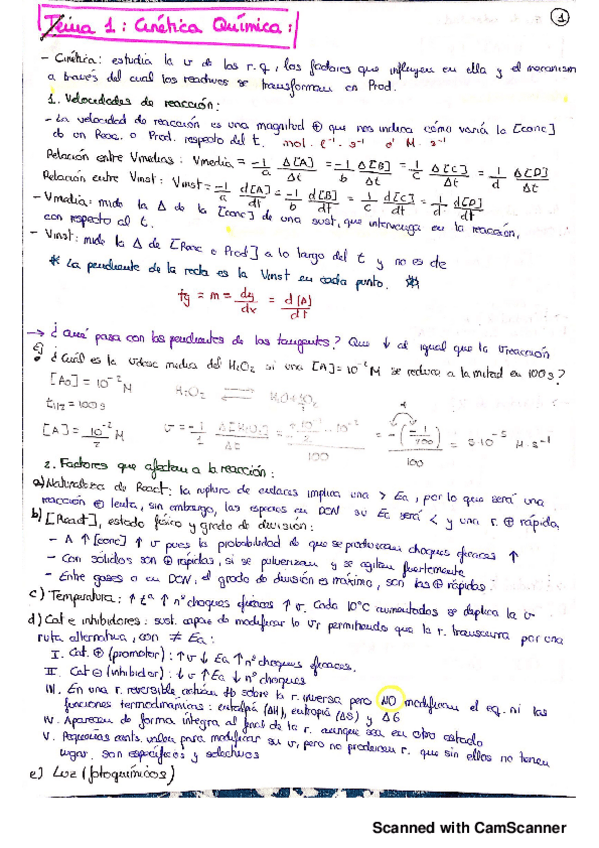 Tema 1: Cinética Química:
1
- Cinética: estudia la v de las r.q, los factores que influyen en ella y el mecanismo
a través del cual los reactivos se transforman en Prod.
1. Velocidades de reacción:
- La velocidad de reacción es una magnitud ⊕ que nos indica cómo varía la [conc]
de un Reac. o Prod. respecto del t. mol·l⁻¹·s⁻¹ o' M·s⁻¹
Relación entre Vmedias: Vmedia = -1/a Δ[A]/Δt = -1/b Δ[B]/Δt = 1/c Δ[C]/Δt = 1/d Δ[D]/Δt
Relación entre Vinst: Vinst = -1/a d[A]/dt = -1/b d[B]/dt = 1/c d[C]/dt = 1/d d[D]/dt
- Vmedia: mide la Δ de la [conc] de una sust, que intervenga en la reacción,
con respecto al t.
- Vinst: mide la Δ de [Reac o Prod] a lo largo del t y no es de
* La pendiente de la recta es la Vinst en cada punto.
tg = m = dy/dx = d(A)/dt
→ ¿Qué pasa con las pendientes de las tangentes? Que ↓ al igual que la vreacción
Ej ¿Cuál es la media del H₂O₂ si una [A]=10⁻² M se reduce a la mitad en 100s?
[A₀] = 10⁻² M H₂O₂ ⇌
t1/2 = 100s
[A] = 10⁻²/2 M v = -1/1 Δ[H₂O₂]/Δt = 100 = 100 = 5·10⁻⁵ M·s⁻¹
2. Factores que afectan a la reacción:
a) Naturaleza de React: la ruptura de enlaces implica una > Ea, por lo que será una
reacción ⊕ lenta, sin embargo, las especies en DCN su Ea será < y una r. ⊕ rápida.
b) [React], estado físico y grado de división:
- A ↑ [conc] ↑ v pues la probabilidad de que se produzcan choques eficaces ↑
- Con sólidos son ⊕ rápidas, si se pulverizan y se agitan fuertemente
- Entre gases o en DCN, el grado de división es máximo, son las ⊕ rápidas.
c) Temperatura: ↑ tª ↑ nº choques eficaces ↑ v. Cada 10°C aumentados se duplica la v
d) Cat e inhibidores: sust. capaz de modificar la vr permitiendo que la r. transcurra por una
ruta alternativa, con ≠ Ea:
I. Cat. ⊕ (promotor): ↑v ↓ Ea ↑ nº choques eficaces.
II. Cat ⊖ (inhibidor): ↓v ↑ Ea ↓ nº choques
III. En una r. reversible actúan tb sobre la r. inversa pero NO modifican el eq. ni las
funciones termodinámicas: entalpía (ΔH), entropía (ΔS) y ΔG
IV. Aparecen de forma íntegra al final de la r. aunque sea en otro estado
V. Pequeñas cants. valen para modificar su v, pero no producen r. que sin ellos no tienen
lugar. son específicos y selectivos
e) Luz (fotoquímicos)
Scanned with CamScanner